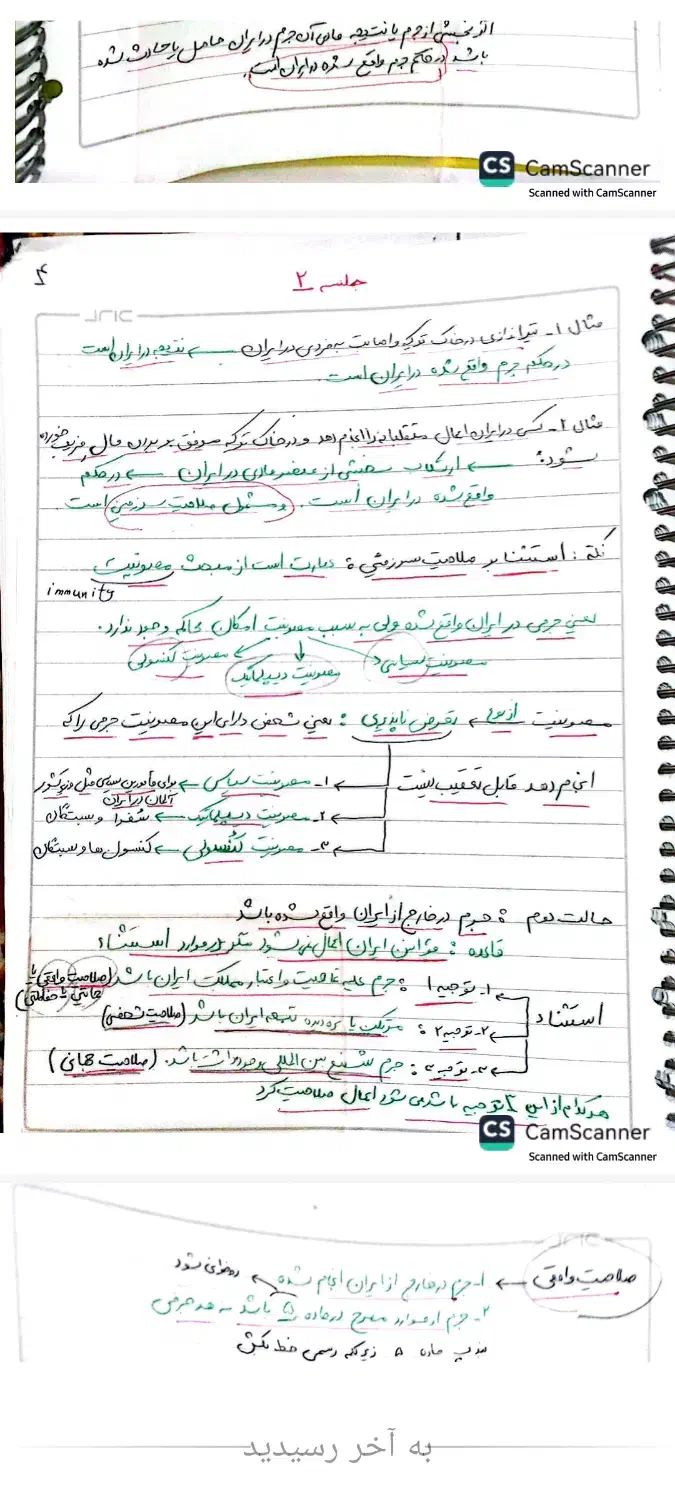 اگر بخشی از جرم یا نتیجه مادی آن جرم در ایران حاصل یا حادث شده
باشد در حکم جرم واقع شده در ایران است.
CS CamScanner
Scanned with CamScanner
جلسه ۲
۴
مثال ۱- تیراندازی در خاک ترکیه و اصابت به فردی در ایران ← نتیجه در ایران است
در حکم جرم واقع شده در ایران است.
مثال ۲- کسی در ایران اعمال متقلبانه را انجام دهد و در خاک ترکیه موفق بر بردن مال فریب خورده
شود: ← ارتکاب بخشی از عنصر مادی در ایران ← در حکم
واقع شده در ایران است. و مشمول صلاحیت سرزمینی است
نکته: استثنا بر صلاحیت سرزمینی: عبارت است از مبحث مصونیت
immunity
یعنی جرمی در ایران واقع شده ولی به سبب مصونیت امکان محاکمه وجود ندارد.
مصونیت سیاسی مصونیت دیپلماتیک مصونیت کنسولی
مصونیت از نوع تعرض ناپذیری: یعنی شخص دارای این مصونیت جرمی را که
انجام دهد قابل تعقیب نیست
۱- مصونیت سیاسی ← برای مأمورین سیاسی مثل کشور
آلمان در ایران
۲- مصونیت دیپلماتیک ← سفرا و بستگان
۳- مصونیت کنسولی ← کنسول ها و بستگان
حالت دوم: جرم در خارج از ایران واقع شده باشد
قاعده: قوانین ایران اعمال نمی شود مگر در موارد استثناء
استثناء
۱- توجیه ۱: جرم علیه تمامیت و اعتبار مملکت ایران باشد (صلاحیت واقعی یا
حمایتی یا حفاظتی)
۲- توجیه ۲: مرتکب یا بزه دیده تبعه ایران باشد (صلاحیت شخصی)
۳- توجیه ۳: جرم شنیع بین المللی باشد. (صلاحیت جهانی)
هر کدام از این ۳ توجیه باشد می شود اعمال صلاحیت کرد
CS CamScanner
Scanned with CamScanner
صلاحیت واقعی ← ۱- جرم در خارج از ایران انجام شده ← روخوانی شود
۲- جرم از موارد مصرح در ماده ۵ باشد
ماده ۵ زیر کلمه رسمی خط بکش
به آخر رسیدید